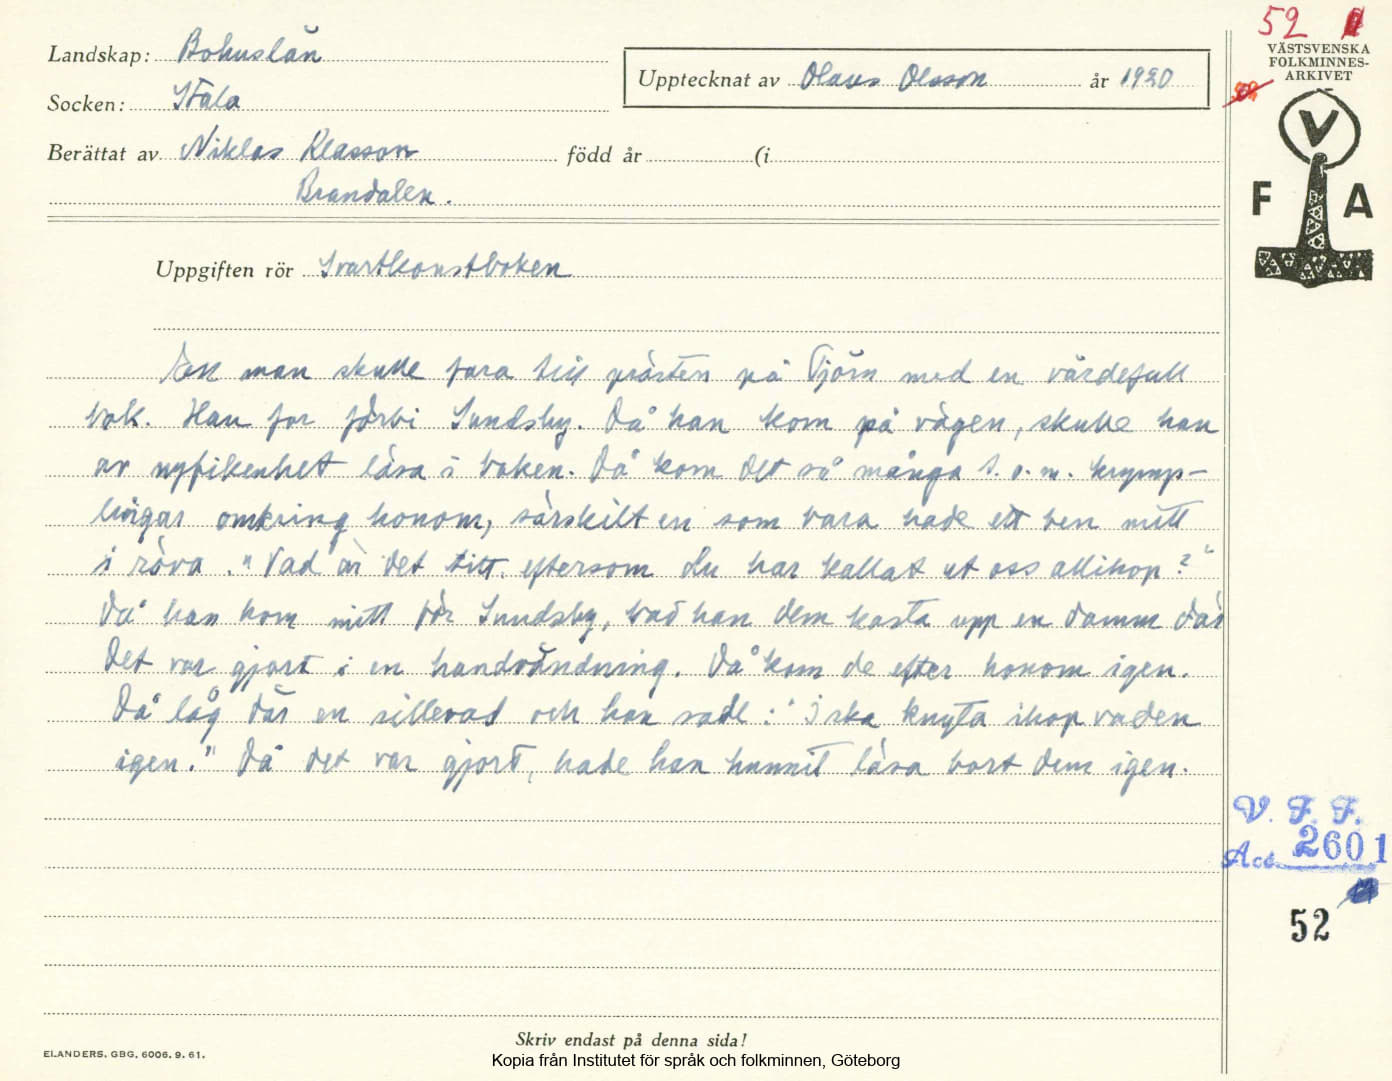 52
VÄSTSVENSKA
FOLKMINNES-
ARKIVET
V
F A
Landskap: Bohuslän
Socken: Stala
Upptecknat av Olaus Olsson år 1920
Berättat av Niklas Klasson född år (i
Brandalen.
Uppgiften rör Svartkonstboken
En man skulle fara till prästen på Tjörn med en värdefull
bok. Han for förbi Sundsby. Då han kom på vägen, skulle han
av nyfikenhet läsa i boken. Då kom det så många s.o.m. krymp-
lingar omkring honom, särskilt en som bara hade ett ben mitt
i röva. "Vad är det titt, eftersom du har kallat ut oss allihop?"
Då han kom mitt för Sundsby, bad han dem kasta upp en damm där
Det var gjort i en handvändning. Då kom de efter honom igen.
Då låg där en sillevad och han sade: "I ska knyta ihop vaden
igen." Då det var gjort, hade han hunnit läsa bort dem igen.
V. F. F.
Acc. 2601
52
Skriv endast på denna sida!
ELANDERS, GBG, 6006. 9. 61.
Kopia från Institutet för språk och folkminnen, Göteborg